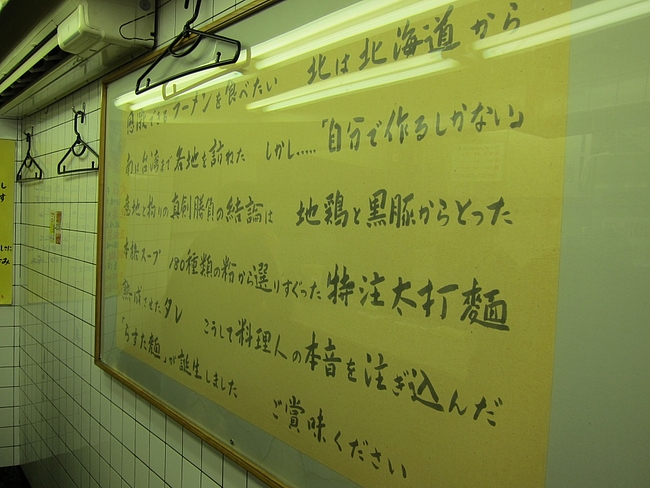 感激できるラーメンを食べたい 北は北海道から
南は台湾まで各地を訪ねた しかし.....「自分で作るしかない」
意地と拘りの真剣勝負の結論は 地鶏と黒豚からとった
本格スープ 180種類の粉から選りすぐった特注太打麺
熟成させたタレ こうして料理人の本音を注ぎ込んだ
「らすた麺」が誕生しました ご賞味ください